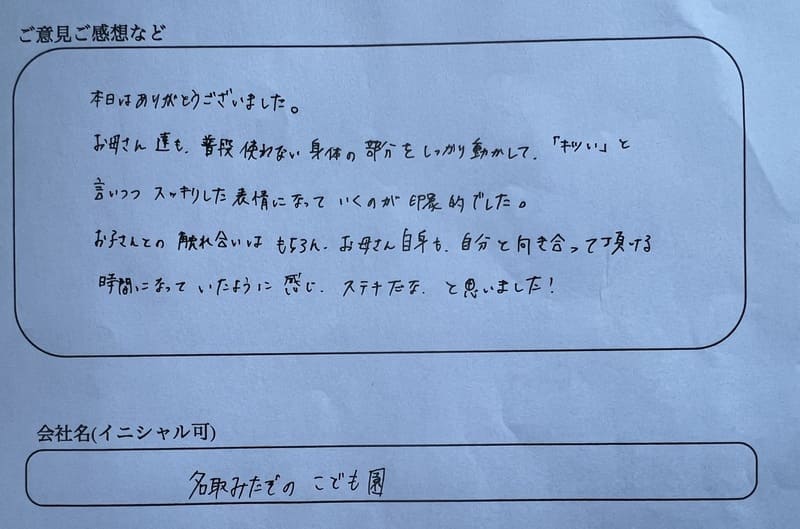 ご意見ご感想など
本日はありがとうございました。
お母さん達も、普段使わない身体の部分をしっかり動かして、「キツい」と
言いつつスッキリした表情になっていくのが印象的でした。
お子さんとの触れ合いはもちろん、お母さん自身も、自分と向き合って頂ける
時間になっていたように感じ、ステキだな、と思いました!
会社名(イニシャル可)
名取みたぞのこども園